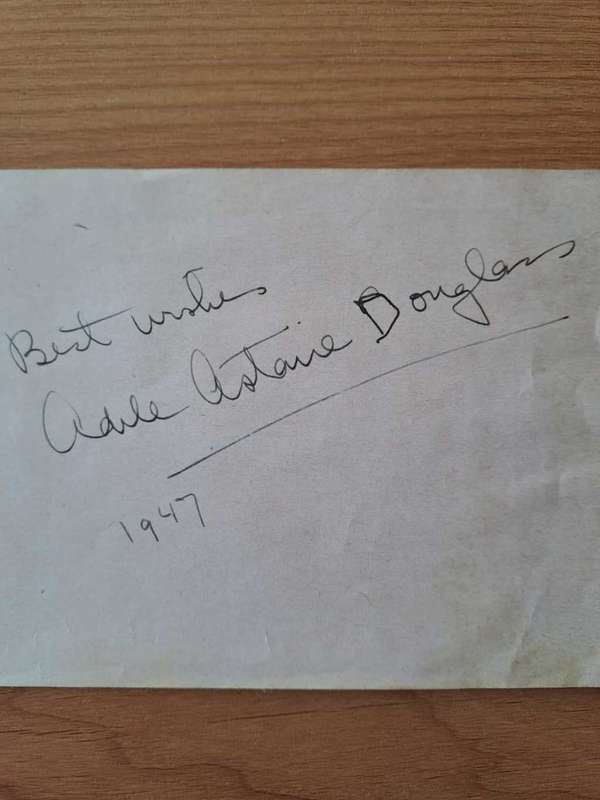 Best wishes
Adele Astaire Douglass
1947